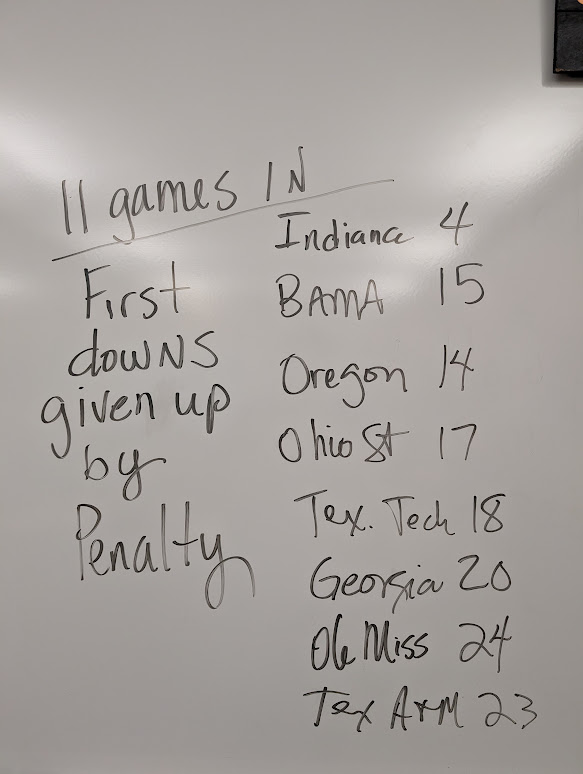 11 games IN
First
downs
given up
by
Penalty
Indiana 4
BAMA 15
Oregon 14
Ohio St 17
Tex. Tech 18
Georgia 20
Ole Miss 24
Tex A+M 23